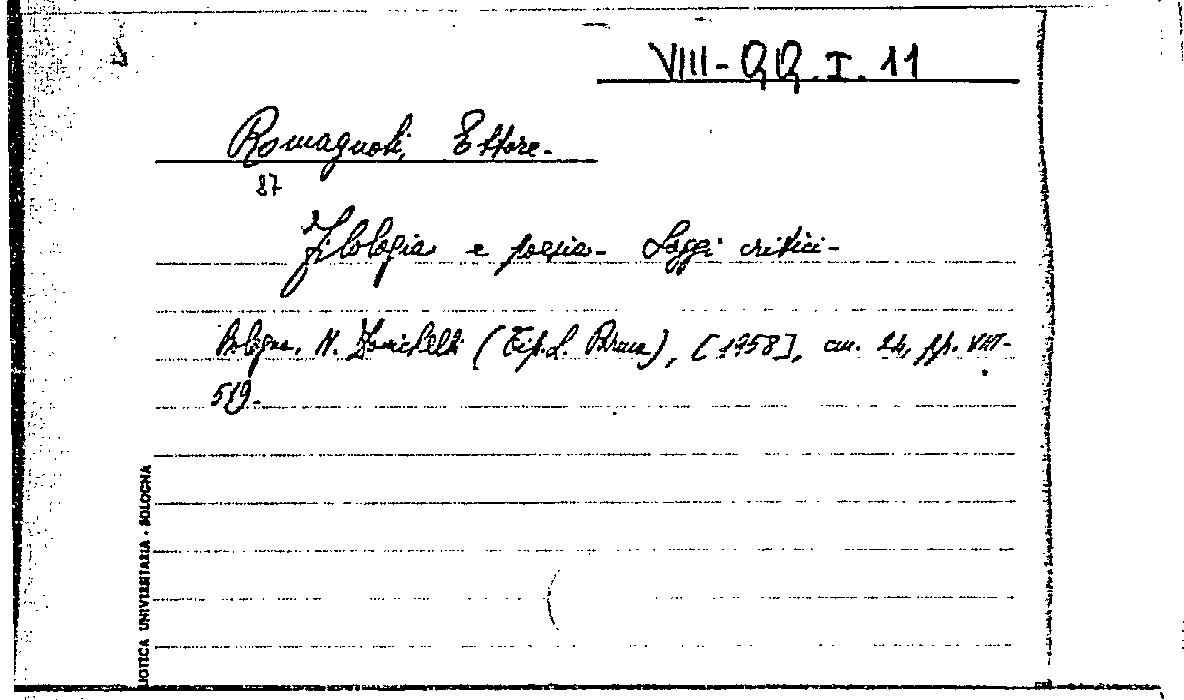 VIII - QQ. I. 11
Romagnoli, Ettore.
87
Filologia e poesia - Saggi critici -
Bologna, N. Zanichelli (Tip. L. Parma), [1958], cm. 24, pp. VIII-
519.
LIOTICA UNIVERSITARIA - BOLOGNA